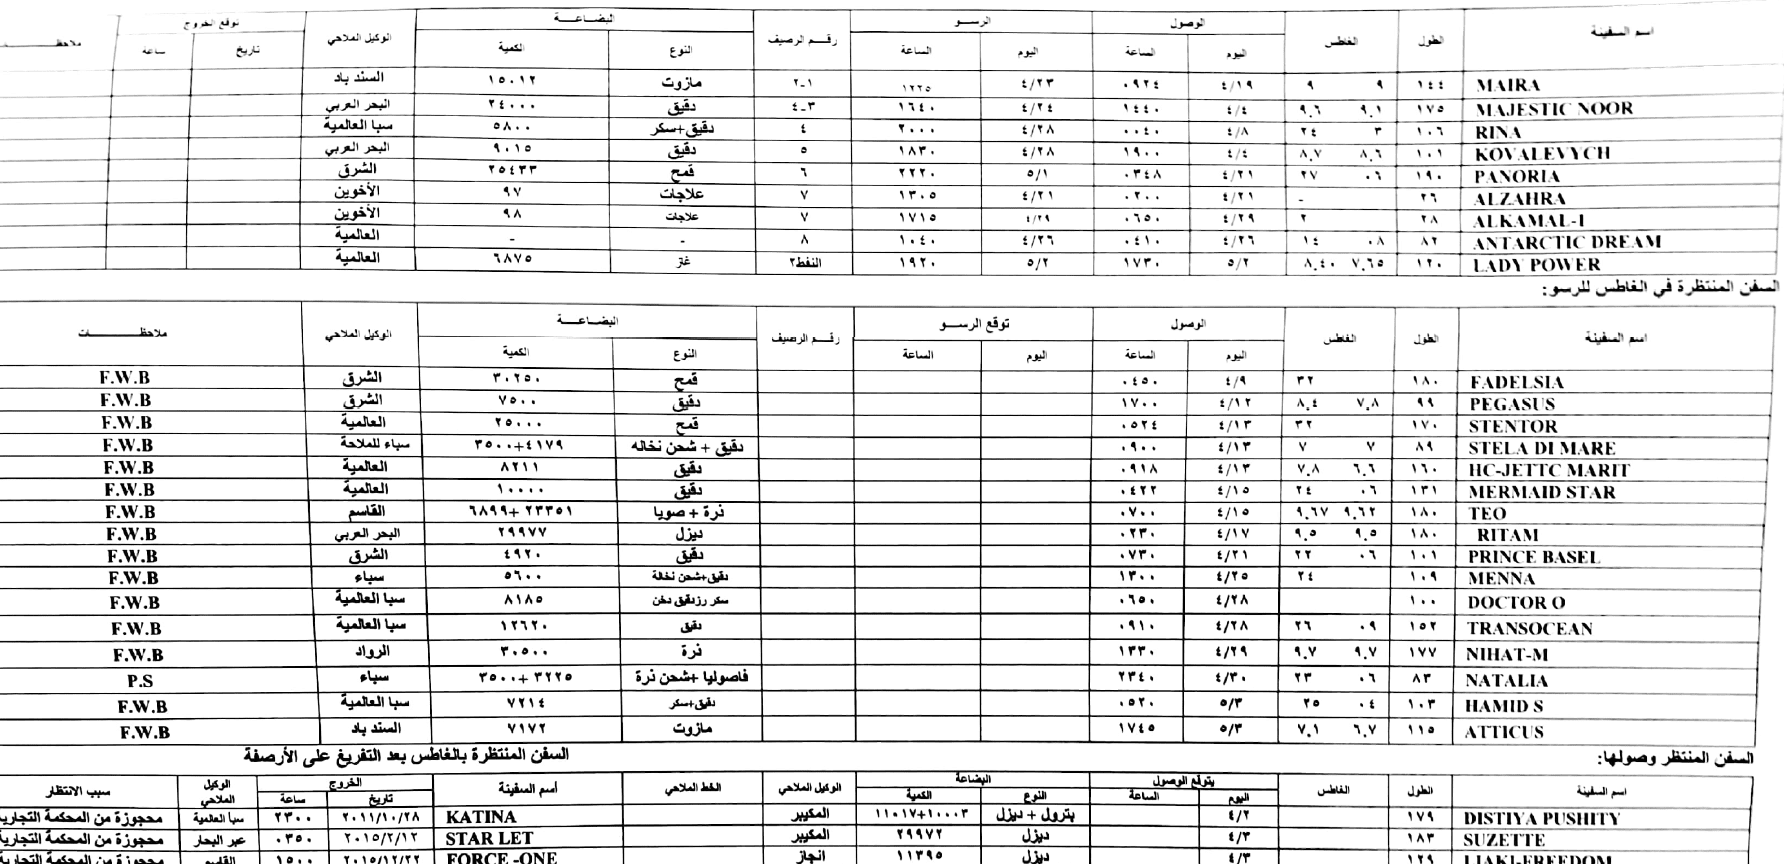 اسم السفينة الطول الغاطس الوصول الرســو رقــم الرصيف البضـاعــة الوكيل الملاحي توقع الخروج ملاحظـــــات
اليوم الساعة اليوم الساعة النوع الكمية تاريخ ساعة
MAIRA ١٤٤ ٩ ٩ ٤/١٩ ٠٩٢٤ ٤/٢٣ ١٢٢٥ ١-٢ مازوت ١٥٠١٢ السند باد
MAJESTIC NOOR ١٧٥ ٩.١ ٩.٦ ٤/٤ ١٤٤٠ ٤/٢٤ ١٦٤٠ ٣-٤ دقيق ٢٤٠٠٠ البحر العربي
RINA ١٠٦ ٣ ٢٤ ٤/٨ ٠٠٤٠ ٤/٢٨ ٢٠٠٠ ٤ دقيق+سكر ٥٨٠٠ سبا العالمية
KOVALEVYCH ١٠١ ٨.٦ ٨.٧ ٤/٤ ١٩٠٠ ٤/٢٨ ١٨٣٠ ٥ دقيق ٩٠١٥ البحر العربي
PANORIA ١٩٠ ٠٦ ٢٧ ٤/٢١ ٠٣٤٨ ٥/١ ٢٢٢٠ ٦ قمح ٢٥٤٣٣ الشرق
ALZAHRA ٢٦ - ٤/٢١ ٠٢٠٠ ٤/٢١ ١٣٠٥ ٧ علاجات ٩٧ الأخوين
ALKAMAL-1 ٢٨ ٢ ٤/٢٩ ٠٦٥٠ ٤/٢٩ ١٧١٥ ٧ علاجات ٩٨ الأخوين
ANTARCTIC DREAM ٨٢ ٠٨ ١٤ ٤/٢٦ ٠٤١٠ ٤/٢٦ ١٠٤٠ ٨ - - العالمية
LADY POWER ١٢٠ ٧.٦٥ ٨.٤٠ ٥/٢ ١٧٣٠ ٥/٢ ١٩٢٠ النفط٢ غاز ٦٨٧٥ العالمية
السفن المنتظرة في الغاطس للرسو:
اسم السفينة الطول الغاطس الوصول توقع الرســو رقــم الرصيف البضـاعــة الوكيل الملاحي ملاحظـــــات
اليوم الساعة اليوم الساعة النوع الكمية
FADELSIA ١٨٠ ٣٢ ٤/٩ ٠٤٥٠ قمح ٣٠٢٥٠ الشرق F.W.B
PEGASUS ٩٩ ٧.٨ ٨.٤ ٤/١٢ ١٧٠٠ دقيق ٧٥٠٠ الشرق F.W.B
STENTOR ١٧٠ ٣٢ ٤/١٣ ٠٥٢٤ قمح ٢٥٠٠٠ العالمية F.W.B
STELA DI MARE ٨٩ ٧ ٧ ٤/١٣ ٠٩٠٠ دقيق + شحن نخاله ٤١٧٩+٣٥٠٠ سباء للملاحة F.W.B
HC-JETTC MARIT ١٦٠ ٦.٦ ٧.٨ ٤/١٣ ٠٩١٨ دقيق ٨٢١١ العالمية F.W.B
MERMAID STAR ١٣١ ٠٦ ٢٤ ٤/١٥ ٠٤٢٢ دقيق ١٠٠٠٠ العالمية F.W.B
TEO ١٨٠ ٩.٦٢ ٩.٦٧ ٤/١٥ ٠٧٠٠ ذرة + صويا ٢٣٣٥١+ ٦٨٩٩ القاسم F.W.B
RITAM ١٨٠ ٩.٥ ٩.٥ ٤/١٧ ٠٢٣٠ ديزل ٢٩٩٧٧ البحر العربي F.W.B
PRINCE BASEL ١٠١ ٠٦ ٢٢ ٤/٢١ ٠٧٣٠ دقيق ٤٩٢٠ الشرق F.W.B
MENNA ١٠٩ ٢٤ ٤/٢٥ ١٣٠٠ دقيق+شحن نخالة ٥٦٠٠ سباء F.W.B
DOCTOR O ١٠٠ ٤/٢٨ ٠٦٥٠ سكر رز دقيق دخن ٨١٨٥ سبا العالمية F.W.B
TRANSOCEAN ١٥٢ ٠٩ ٢٦ ٤/٢٨ ٠٩١٠ دقيق ١٢٦٢٠ سبا العالمية F.W.B
NIHAT-M ١٧٧ ٩.٧ ٩.٧ ٤/٢٩ ١٣٣٠ ذرة ٣٠٥٠٠ الرواد F.W.B
NATALIA ٨٣ ٠٦ ٢٣ ٤/٣٠ ٢٣٤٠ فاصوليا +شحن ذرة ٣٢٢٥ +٣٥٠٠ سباء P.S
HAMID S ١٠٣ ٠٤ ٢٥ ٥/٣ ٠٥٢٠ دقيق+سكر ٧٢١٤ سبا العالمية F.W.B
ATTICUS ١١٥ ٦.٧ ٧.١ ٥/٣ ١٧٤٥ مازوت ٧١٧٢ السند باد F.W.B
السفن المنتظر وصولها: السفن المنتظرة بالغاطس بعد التفريغ على الأرصفة
اسم السفينة الطول الغاطس يتوقع الوصول البضاعة الوكيل الملاحي الخط الملاحي أسم السفينة الخروج الوكيل الملاحي سبب الانتظار
اليوم الساعة النوع الكمية تاريخ ساعة
DISTIYA PUSHITY ١٧٩ ٤/٢ بترول + ديزل ١٠٠٠٣+١١٠١٧ المكيبر KATINA ٢٠١١/١٠/٢٨ ٢٣٠٠ سبا العالمية محجوزة من المحكمة التجارية
SUZETTE ١٨٣ ٤/٣ ديزل ٢٩٩٧٢ المكيبر STAR LET ٢٠١٥/٢/١٢ ٠٣٥٠ عبر البحار محجوزة من المحكمة التجارية
LIAKI-FREEDOM ١٢٩ ٤/٣ ديزل ١١٣٩٥ انجاز FORCE -ONE ٢٠١٥/١٢/٢٢ ١٥٠٠ القاسم محجوزة من المحكمة التجارية